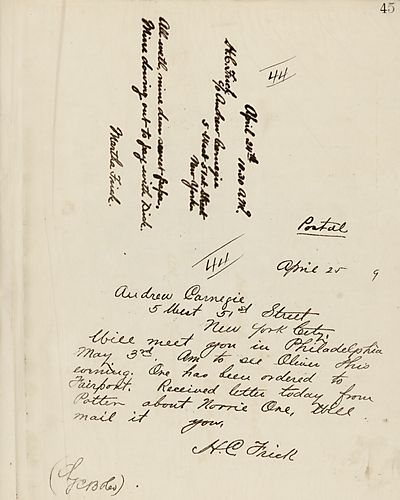 45
44
April 25th 10:30 A.M.
H.C. Frick
c/o Andrew Carnegie
5 West 51st Street
New York.
All well, nine dear sweet papa.
Mine driving out to pay with Dick.
Martha Frick.
Postal
44
April 25 9
Andrew Carnegie
5 West 51st Street
New York City.
Will meet you in Philadelphia
May 3rd. Am to see Oliver this
evening. One has been ordered to
Fairport. Received letter today from
Potter about Norrie Ore, Will
mail it you,
H.C Frick